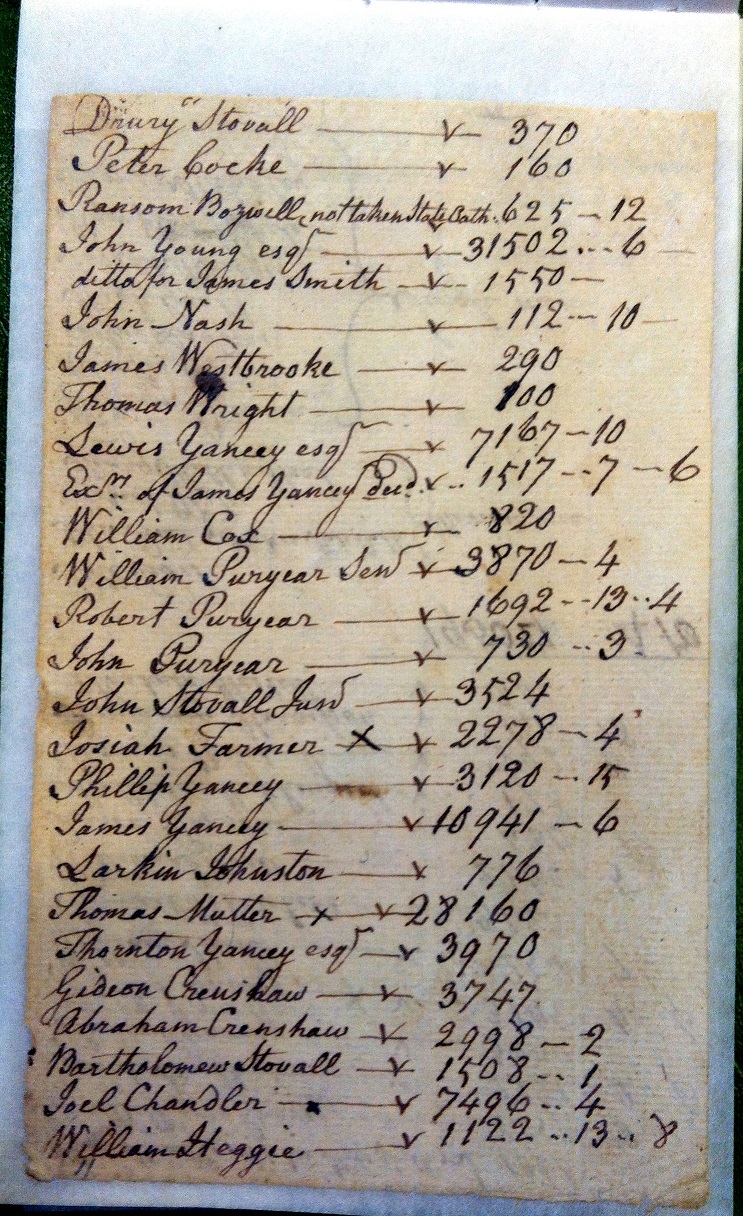 "Drury" Stovall — v — 370
Peter Cocke — v — 160
Ransom Bozwill, not taken State Oath. v 625 — 12
John Young esqr — v — 31502 --- 6 —
ditto for James Smith — v — 1550 —
John Nash — v — 112 --- 10 —
James Westbrooke — v — 290
Thomas Wright — v — 100
Lewis Yancey esqr — v — 7167 — 10
Exrs. of James Yancey decd. v -- 1517 -- 7 — 6
William Cox — v — 820
William Puryear Senr v — 3870 — 4
Robert Puryear — v — 1692 -- 13 -- 4
John Puryear — v — 730 -- 3
John Stovall Junr — v — 3524
Josiah Farmer X — v — 2278 — 4
Phillip Yancey — v — 3120 -- 15
James Yancey — v 10941 — 6
Larkin Johnston — v 776
Thomas Mutter — x — v 28160
Thornton Yancey esqr — v 3970
Gideon Crenshaw — v — 3747
Abraham Crenshaw — v — 2998 — 2
Bartholomew Stovall — v — 1508 -- 1
Joel Chandler — x — v 7496 -- 4
William Heggie — v 1122 -- 13 -- 8